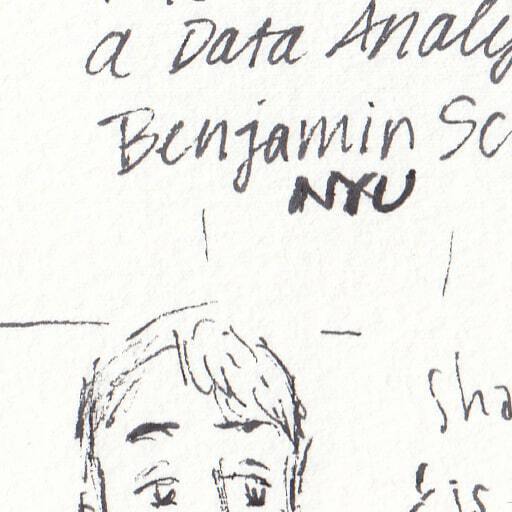 a Data Analy
Benjamin Sc
NYU
sha
is